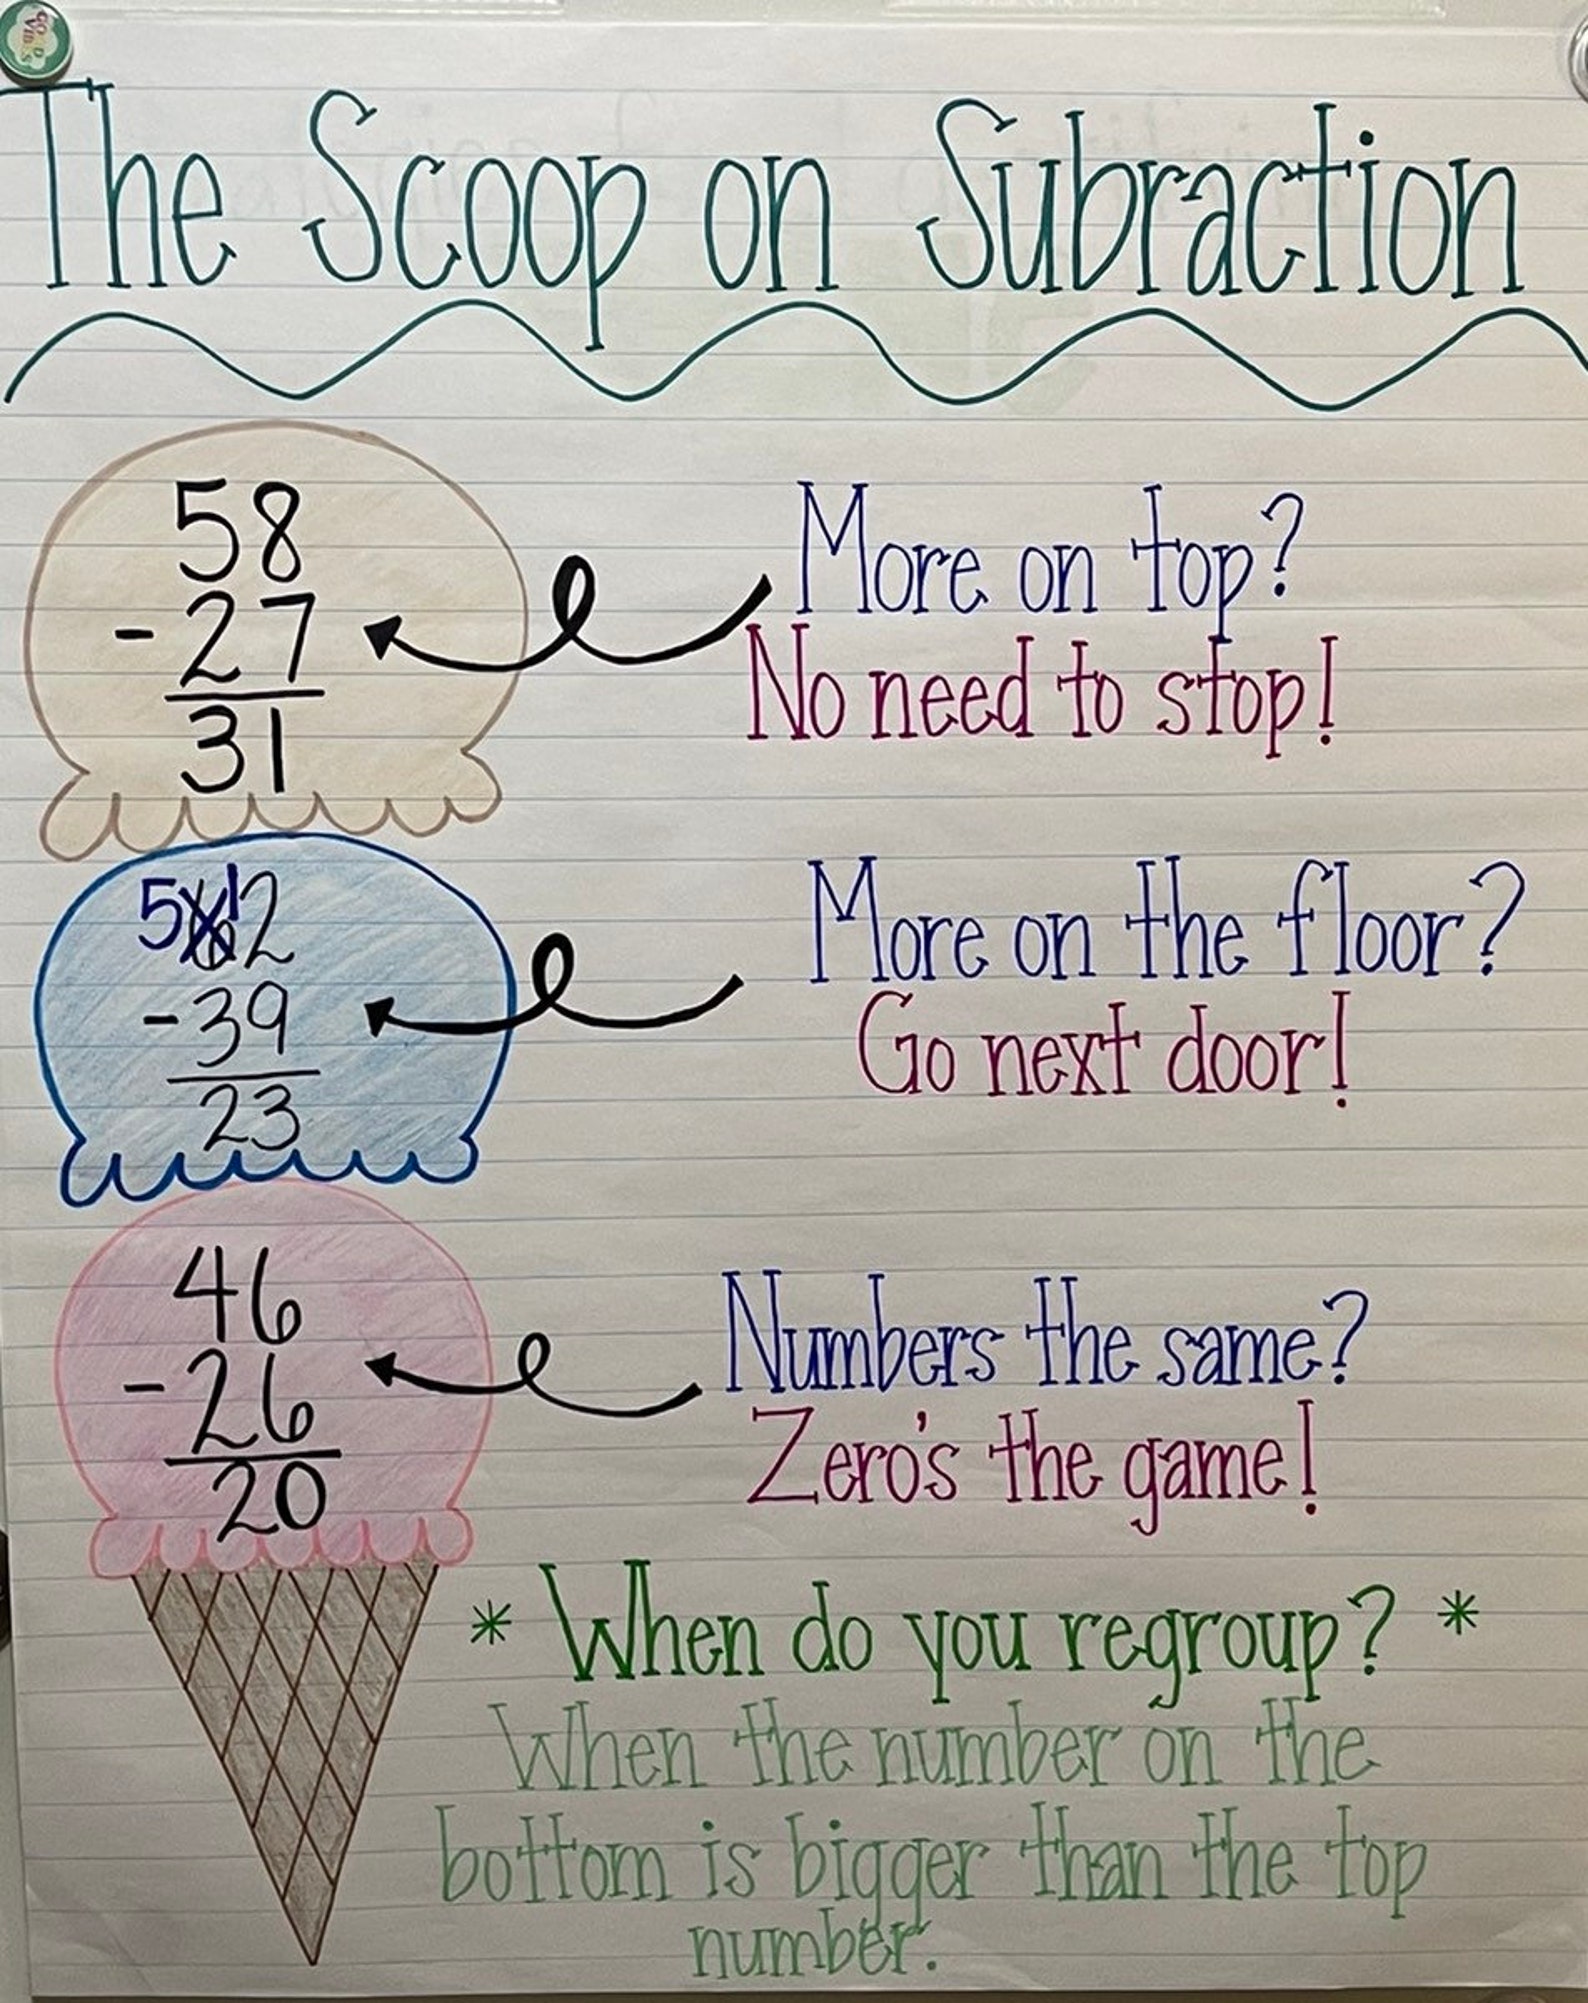 GOOD
VIBES
The Scoop on Subraction
58
- 27
31
More on top?
No need to stop!
5 6 12
- 39
23
More on the floor?
Go next door!
46
- 26
20
Numbers the same?
Zero's the game!
* When do you regroup? *
When the number on the
bottom is bigger than the top
number.